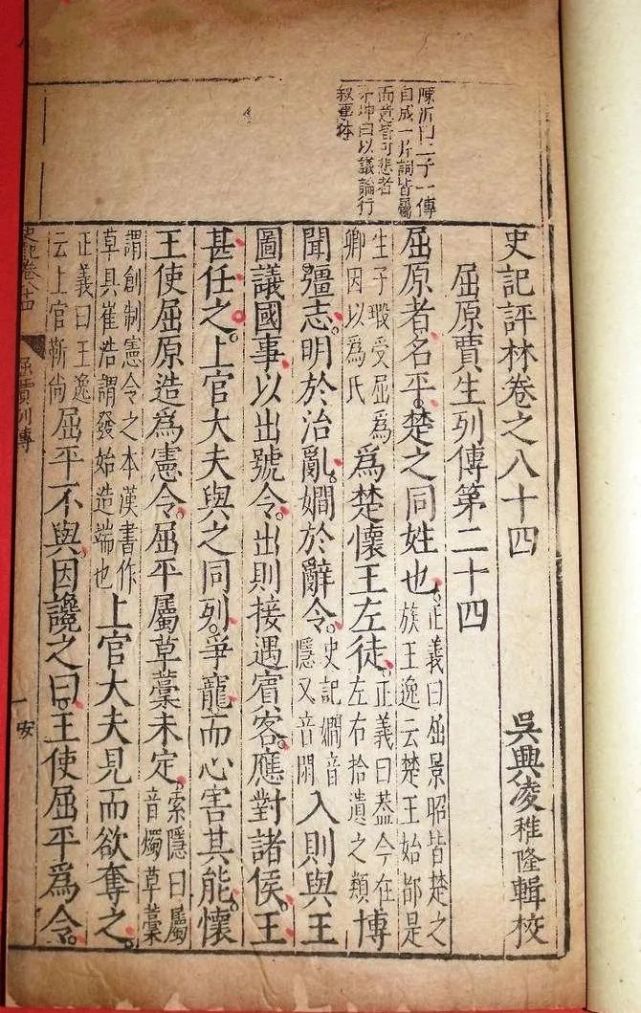 陳沂曰二子一傳
自成一片詞皆屬
而意皆可悲者
茅坤曰以議論行
敘事体
史記評林卷之八十四 吳興凌稚隆輯校
屈原賈生列傳第二十四
屈原者名平。楚之同姓也。正義曰屈景昭皆楚之族王逸云楚王始都是
生子瑕受屈爲卿因以爲氏爲楚懷王左徒。正義曰蓋今在左右拾遺之類博
聞彊志。明於治亂。嫺於辭令。史記嫺音隱又音閑入則與王
圖議國事以出號令。出則接遇賓客。應對諸侯。王
甚任之。上官大夫與之同列。爭寵而心害其能。懷
王使屈原造爲憲令。屈平屬草藁未定。索隱曰屬音燭草藁
謂創制憲令之本漢書作草具崔浩謂發始造端也上官大夫見而欲奪之。
正義曰王逸云上官靳尚屈平不與。因讒之曰。王使屈平爲令。
史記卷八十四 屈賈列傳 一 安